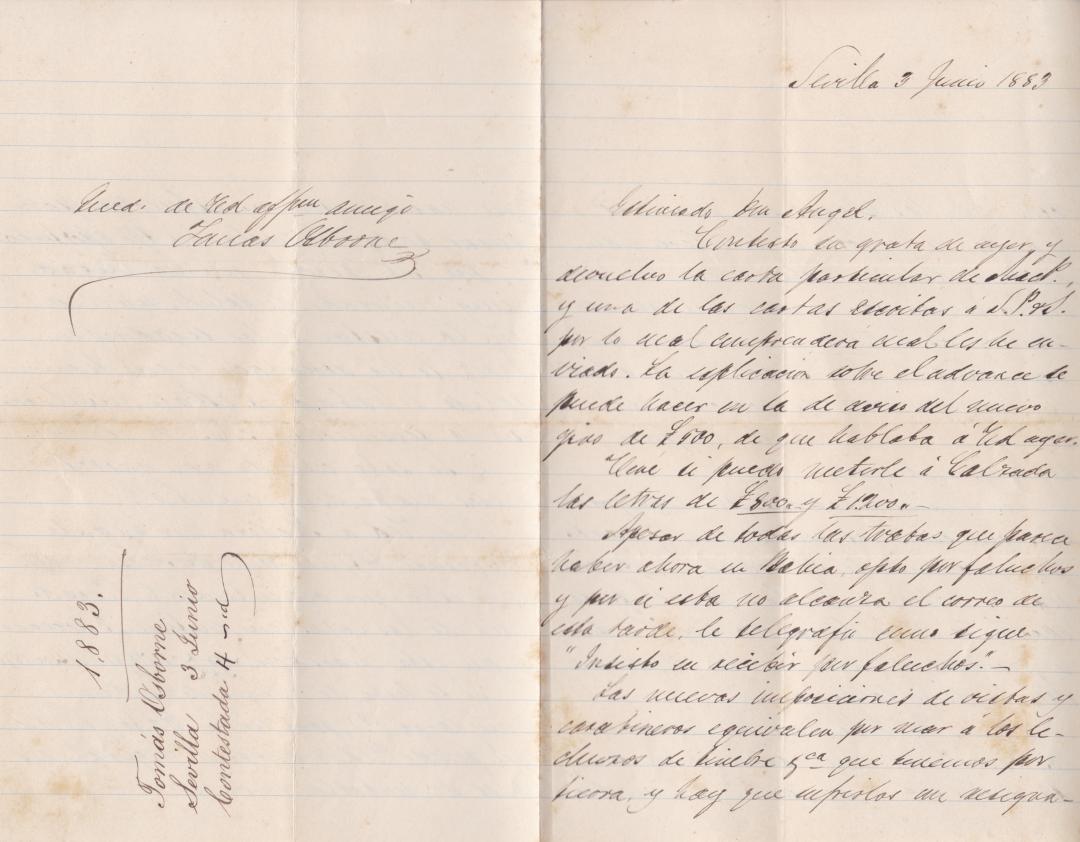 Sevilla 3 Junio 1883
Estimado Don Angel.
Contesto su grata de ayer, y
devuelvo la carta particular de Mack.
y una de las cartas escritas á S.P.&S.
por lo cual comprenderá cual les he en-
viado. La esplicacion sobre el advance se
puede hacer en la de aviso del nuevo
giro de £500, de que hablaba á Ud ayer.
Veré si puedo meterle á Calzada
las letras de £800.. y £1200..-
Apesar de todas las trabas que parece
haber ahora en Bahia, opto por faluchos
y por si esta no alcanza el correo de
esta tarde, le telegrafio como sigue
"Insisto en recibir por faluchos".-
Las nuevas imposiciones de vistas y
carabineros equivalen por mar á los le-
chuzos de timbre que tenemos por
tierra, y hay que sufrirlos con resigna-
Qued. de Ud affmo amigo
Tomás Osborne
1,883.
Tomás Osborne
Sevilla 3 Junio
Contestada 4